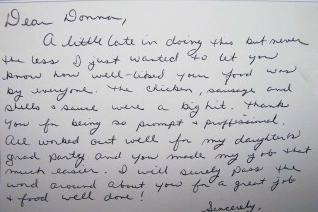 Dear Donna,
A little late in doing this but never
the less I just wanted to let you
know how well-liked your food was
by everyone. The chicken, sausage and
shells & sauce were a big hit. Thank
you for being so prompt & proffessional.
All worked out well for my daughter's
grad party and you made my job that
much easier. I will surely pass the
word around about you for a great job
& food well done!
Sincerely,